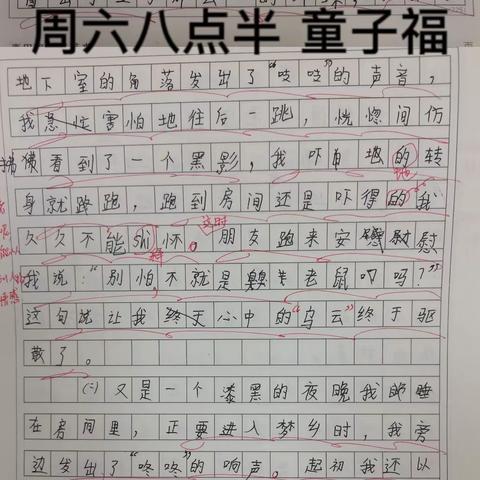 周六八点半 童子福
地下室的角落发出了“吱吱”的声音，
我急忙害怕地往后一跳，恍惚间仿
拂彿看到了一个黑影，我吓白地的转
身就路跑，跑到房间还是吓得的我
久久不能shi怀。朋友跑来安慰尉慰
这时
我说：“别怕不就是臭老鼠叼吗？”
这句说让我终于心中的“乌云”终于驱
散了。
㈡又是一个漆黑的夜晚我的睡
在房间里，正要进入梦乡时，我旁
边发出了“咚咚”的响声。起初我还以